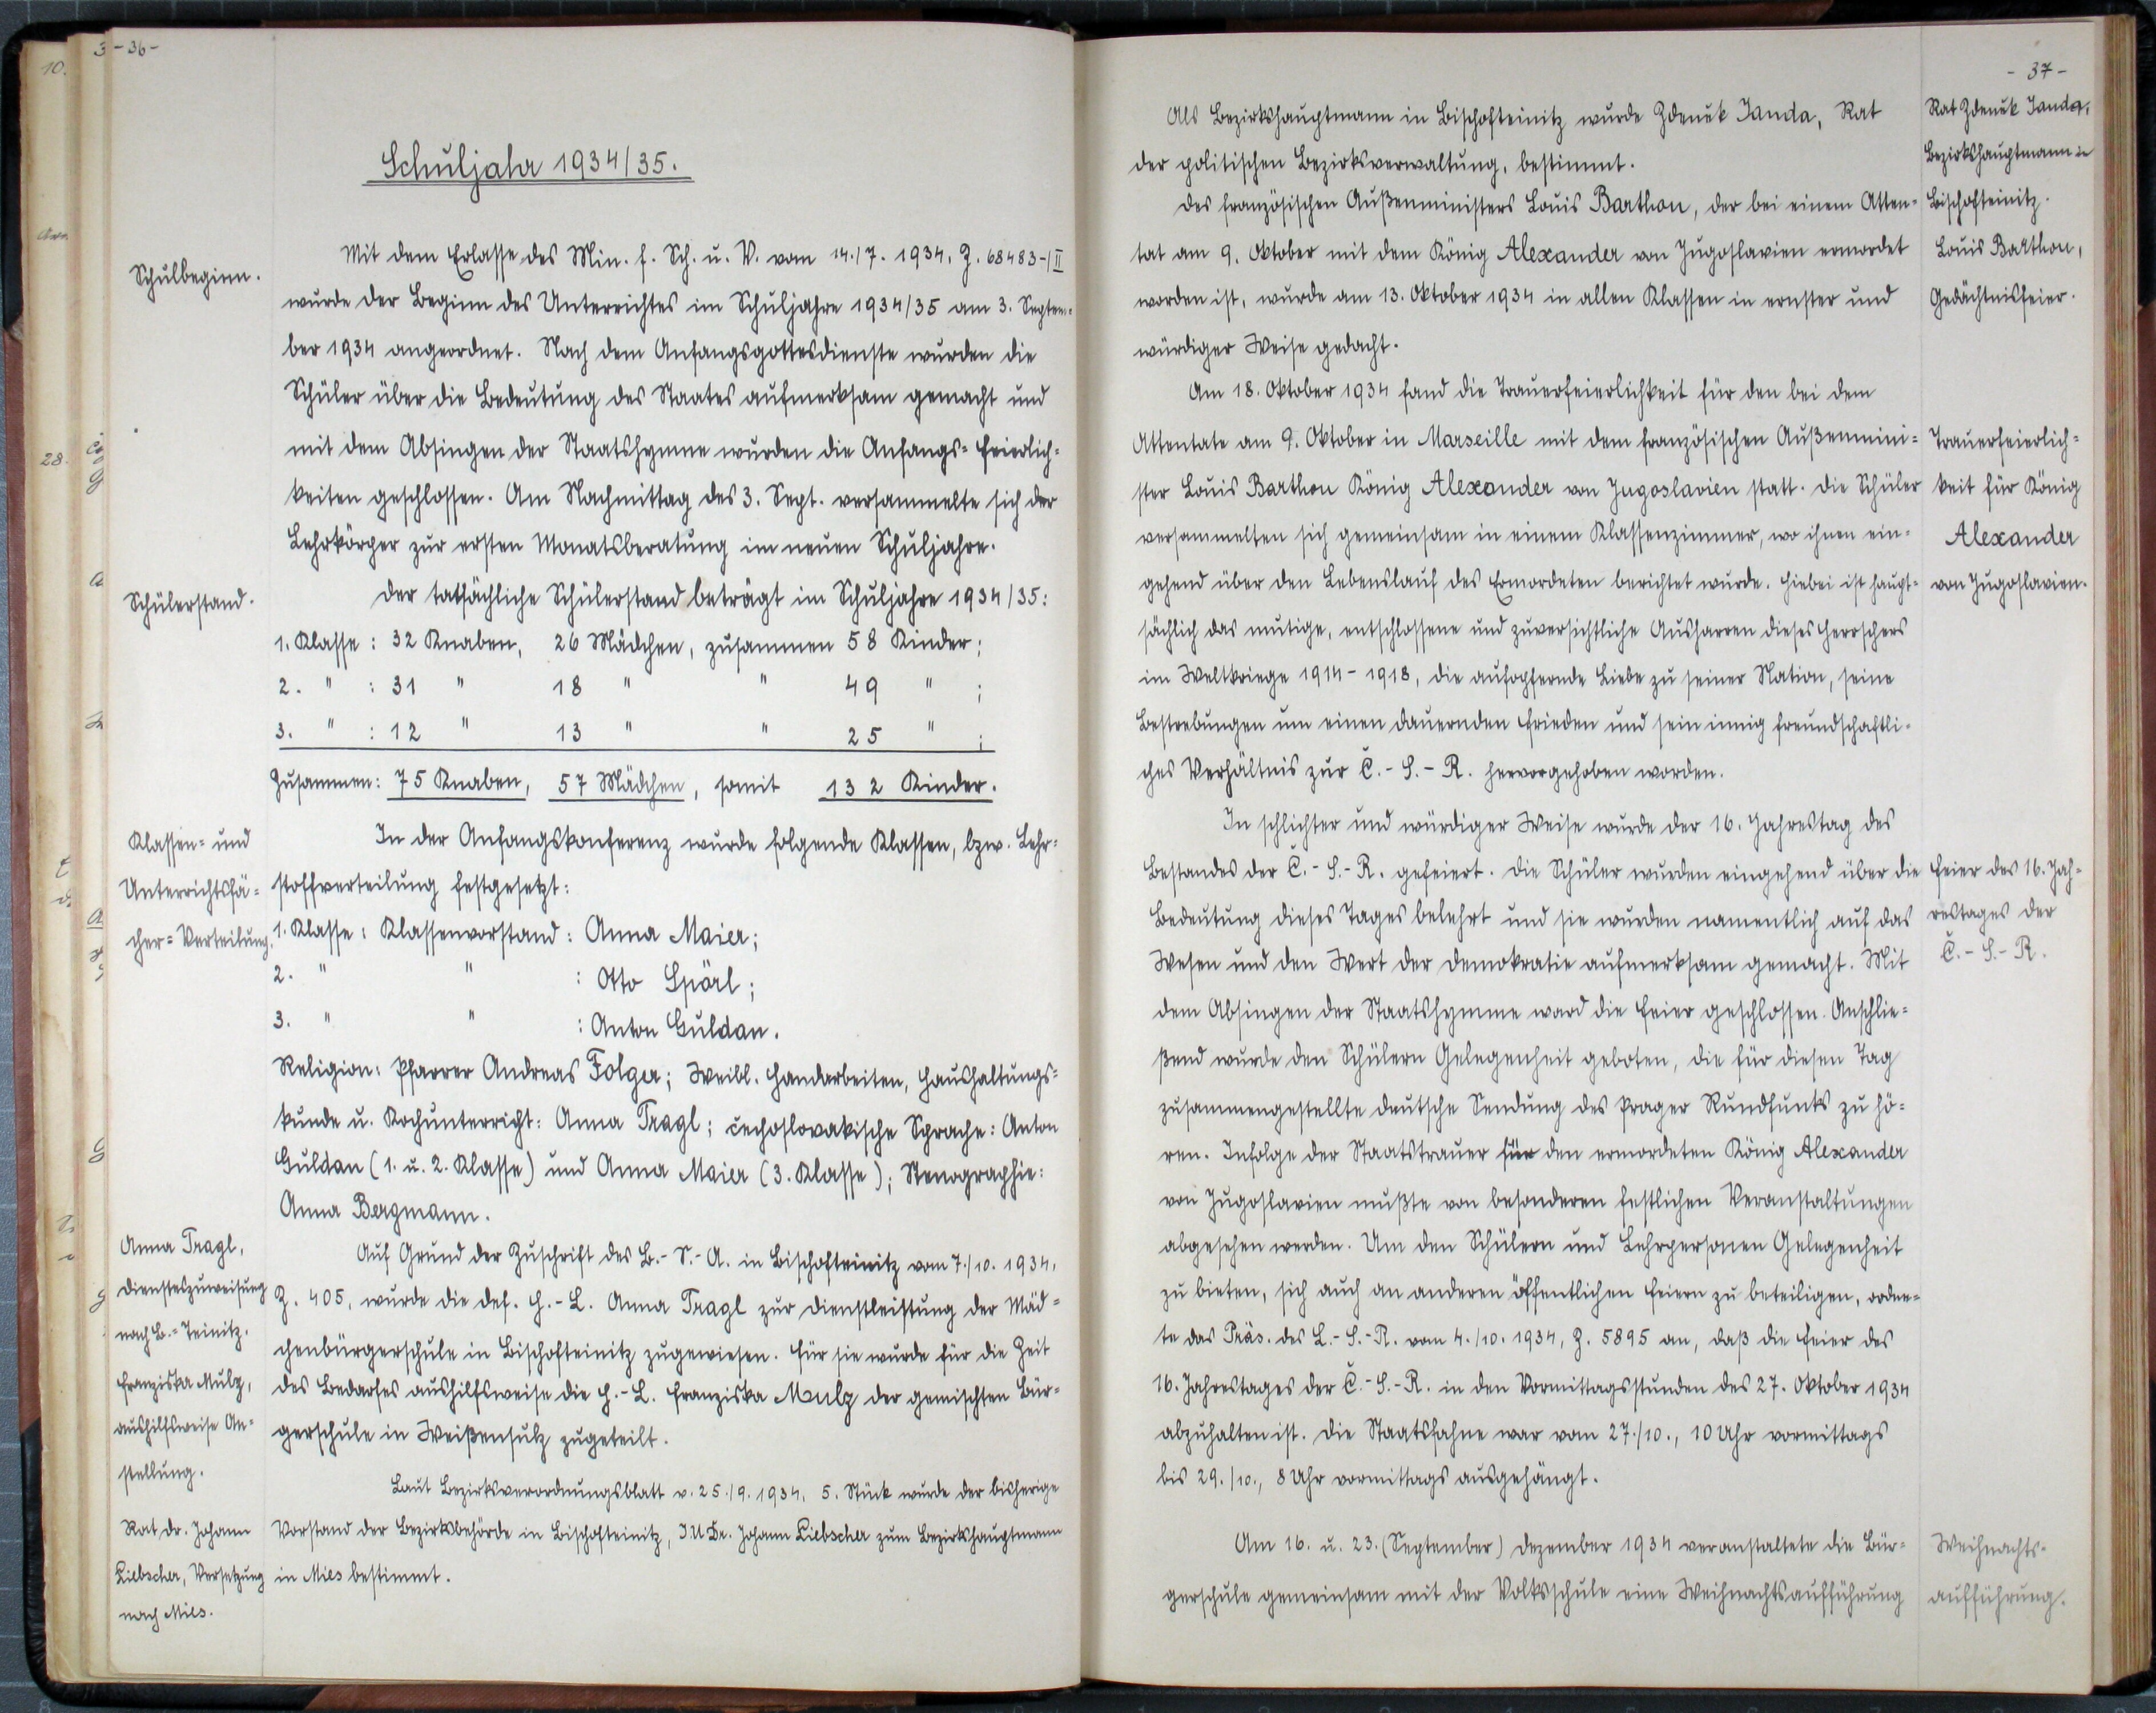 - 36 -
Schuljahr 1934/35.
Schulbeginn.
Mit dem Erlasse des Min. f. Sch. u. V. vom 14./7. 1934, Z. 68483-/II
wurde der Beginn des Unterrichtes im Schuljahre 1934/35 am 3. Septem=
ber 1934 angeordnet. Nach dem Anfangsgottesdienste wurden die
Schüler über die Bedeutung des Staates aufmerksam gemacht und
mit dem Absingen der Staatshymne wurden die Anfangs=Feierlich=
keiten geschlossen. Am Nachmittag des 3. Sept. versammelte sich der
Lehrkörper zur ersten Monatsberatung im neuen Schuljahre.
Schülerstand.
Der tatsächliche Schülerstand beträgt im Schuljahre 1934/35:
1. Klasse : 32 Knaben, 26 Mädchen, zusammen 58 Kinder;
2. " : 31 " 18 " " 49 " ;
3. " : 12 " 13 " " 25 " ;
Zusammen: 75 Knaben, 57 Mädchen, somit 132 Kinder.
Klassen= und
Unterrichtsfä=
cher=Verteilung.
In der Anfangskonferenz wurde folgende Klassen, bzw. Lehr=
stoffverteilung festgesetzt:
1. Klasse : Klassenvorstand : Anna Maier;
2. " " : Otto Spörl;
3. " " : Anton Guldan.
Religion: Pfarrer Andreas Folger; Weibl. Handarbeiten, Haushaltungs=
kunde u. Kochunterricht: Anna Tragl; čechoslovakische Sprache: Anton
Guldan (1. u. 2. Klasse) und Anna Maier (3. Klasse); Stenographie:
Anna Bergmann.
Anna Tragl,
Dienstzuweisung
nach B.=Teinitz.
Franziska Mulz,
aushilfsweise An=
stellung.
Auf Grund der Zuschrift des B.-S.-A. in Bischofteinitz vom 7./10. 1934,
Z. 405, wurde die def. H.-L. Anna Tragl zur Dienstleistung der Mäd=
chenbürgerschule in Bischofteinitz zugewiesen. Für sie wurde für die Zeit
des Bedarfes aushilfsweise die H.-L. Franziska Mulz der gemischten Bür=
gerschule in Weißensulz zugeteilt.
Rat Dr. Johann
Liebscher, Versetzung
nach Mies.
Laut Bezirksverordnungsblatt v. 25./9. 1934, 5. Stück wurde der bisherige
Vorstand der Bezirksbehörde in Bischofteinitz, JUDr. Johann Liebscher zum Bezirkshauptmann
in Mies bestimmt.
- 37 -
Als Bezirkshauptmann in Bischofteinitz wurde Zdeněk Janda, Rat
der politischen Bezirksverwaltung, bestimmt.
Rat Zdeněk Janda,
Bezirkshauptmann in
Bischofteinitz.
Des französischen Außenministers Louis Barthou, der bei einem Atten=
tat am 9. Oktober mit dem König Alexander von Jugoslavien ermordet
worden ist, wurde am 13. Oktober 1934 in allen Klassen in ernster und
würdiger Weise gedacht.
Louis Barthou,
Gedächtnisfeier.
Am 18. Oktober 1934 fand die Trauerfeierlichkeit für den bei dem
Attentate am 9. Oktober in Marseille mit dem französischen Außenmini=
ster Louis Barthou König Alexander von Jugoslavien statt. Die Schüler
versammelten sich gemeinsam in einem Klassenzimmer, wo ihnen ein=
gehend über den Lebenslauf des Ermordeten berichtet wurde. Hiebei ist haupt=
sächlich das mutige, entschlossene und zuversichtliche Ausharren dieses Herrschers
im Weltkriege 1914 - 1918, die aufopfernde Liebe zu seiner Nation, seine
Bestrebungen um einen dauernden Frieden und sein innig freundschaftli=
ches Verhältnis zur Č.-S.-R. hervorgehoben worden.
Trauerfeierlich=
keit für König
Alexander
von Jugoslavien.
In schlichter und würdiger Weise wurde der 16. Jahrestag des
Bestandes der Č.-S.-R. gefeiert. Die Schüler wurden eingehend über die
Bedeutung dieses Tages belehrt und sie wurden namentlich auf das
Wesen und den Wert der Demokratie aufmerksam gemacht. Mit
dem Absingen der Staatshymne ward die Feier geschlossen. Anschlie=
ßend wurde den Schülern Gelegenheit geboten, die für diesen Tag
zusammengestellte deutsche Sendung des Prager Rundfunks zu hö=
ren. Infolge der Staatstrauer für den ermordeten König Alexander
von Jugoslavien mußte von besonderen festlichen Veranstaltungen
abgesehen werden. Um den Schülern und Lehrpersonen Gelegenheit
zu bieten, sich auch an anderen öffentlichen Feiern zu beteiligen, ordne=
te das Präs. des L.-S.-R. vom 4./10. 1934, Z. 5895 an, daß die Feier des
16. Jahrestages der Č.-S.-R. in den Vormittagsstunden des 27. Oktober 1934
abzuhalten ist. Die Staatsfahne war vom 27./10., 10 Uhr vormittags
bis 29./10., 8 Uhr vormittags ausgehängt.
Feier des 16. Jah=
restages der
Č.-S.-R.
Am 16. u. 23. (September) Dezember 1934 veranstaltete die Bür=
gerschule gemeinsam mit der Volksschule eine Weihnachtsaufführung
Weihnachts=
aufführung.